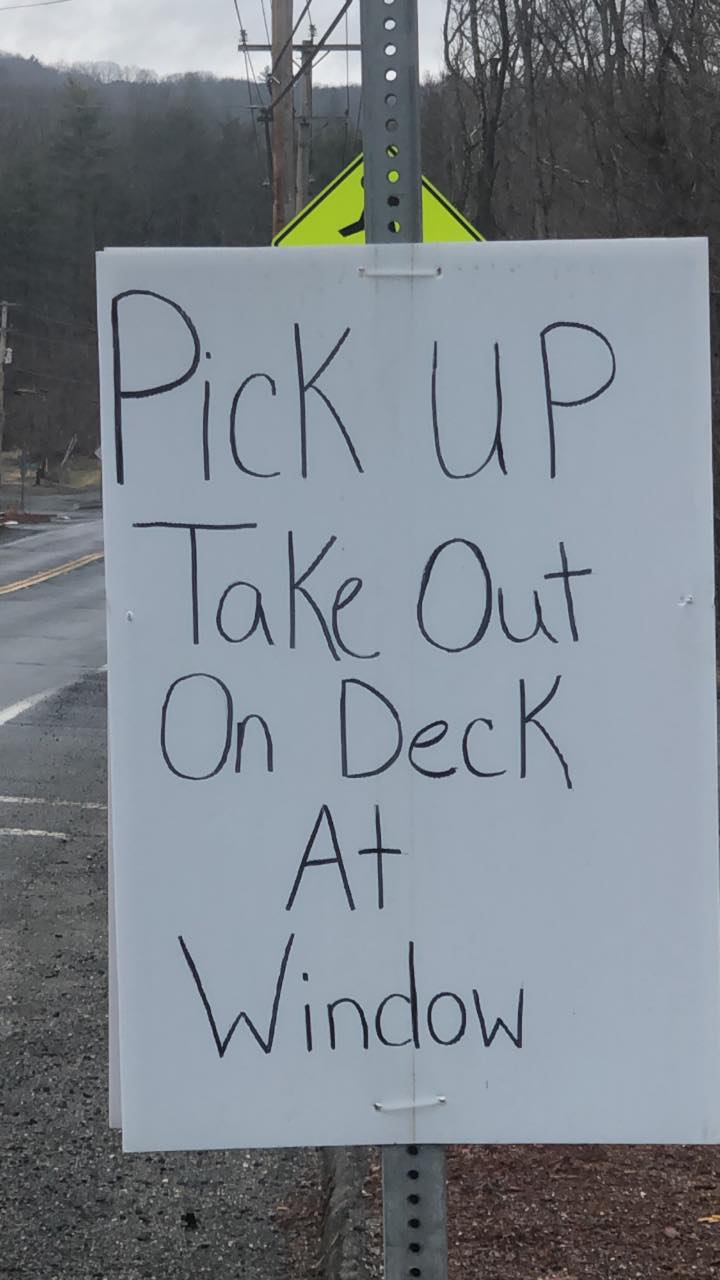 Pick UP
Take Out
On Deck
At
Window